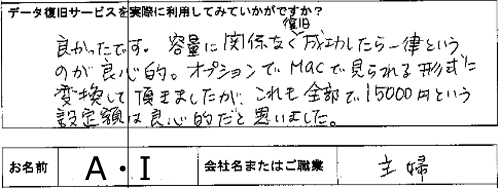 データ復旧サービスを実際に利用してみていかがですか？
良かったです。容量に関係なく復旧成功したら一律という
のが良心的。オプションでMacで見られる形式に
変換して頂きましたが、これも全部で15000円という
設定額は良心的だと思いました。
お名前 A・I 会社名またはご職業 主婦